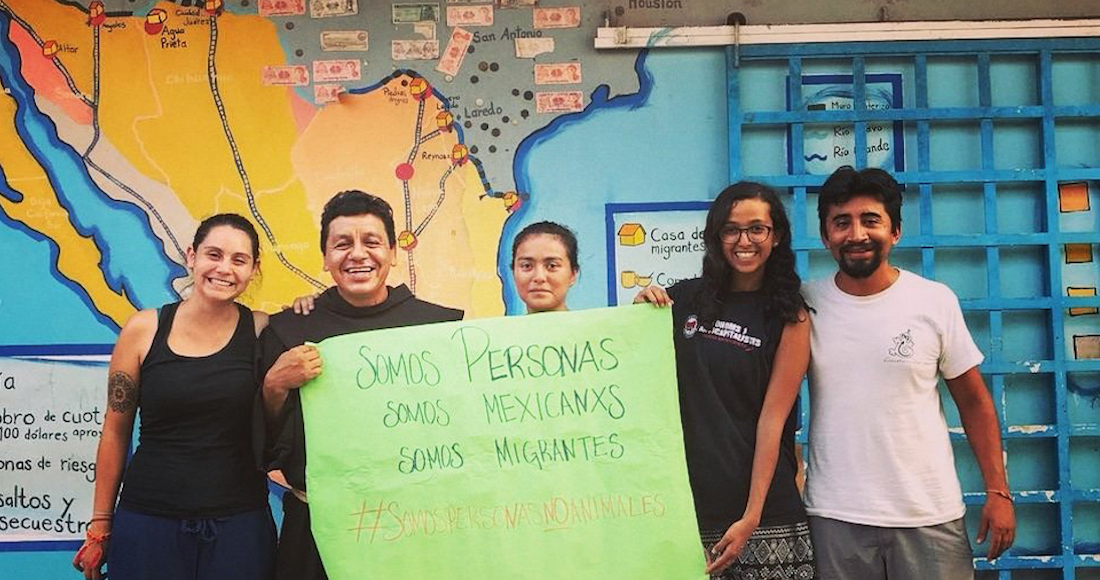 Nogales
Ciudad Juárez
Agua Prieta
Altar
San Antonio
Houston
Piedras Negras
Laredo
Reynosa
Muro
Río Bravo
Río Grande
Casa de
migrantes
SOMOS PERSONAS
SOMOS MEXICANXS
SOMOS MIGRANTES
#SOMOSPERSONASNOANIMALES
ía
bro de cuot
100 dólares apro
onas de riesg
saltos y
secuestro